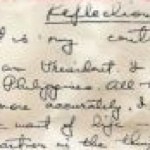 Reflection
is my cont
an President. I
Philippines. All
more accurately, I
want of life
partner in the thin